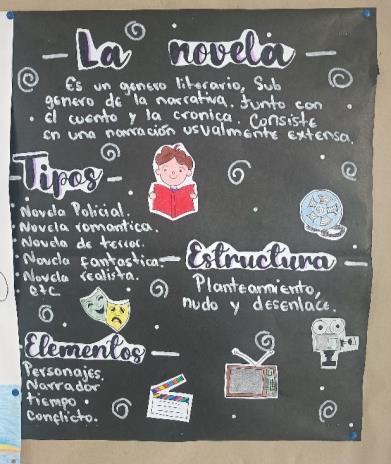 La novela
Es un genero literario, Sub
genero de la narrativa. Junto con
el cuento y la cronica. Consiste
en una narración usualmente extensa.
Tipos
• Novela Policial.
• Novela romantica.
• Novela de terror.
• Novela fantastica.
• Novela realista.
etc.
Estructura
Planteamiento,
nudo y desenlace.
Elementos
Personajes.
Narrador
tiempo
Conflicto.